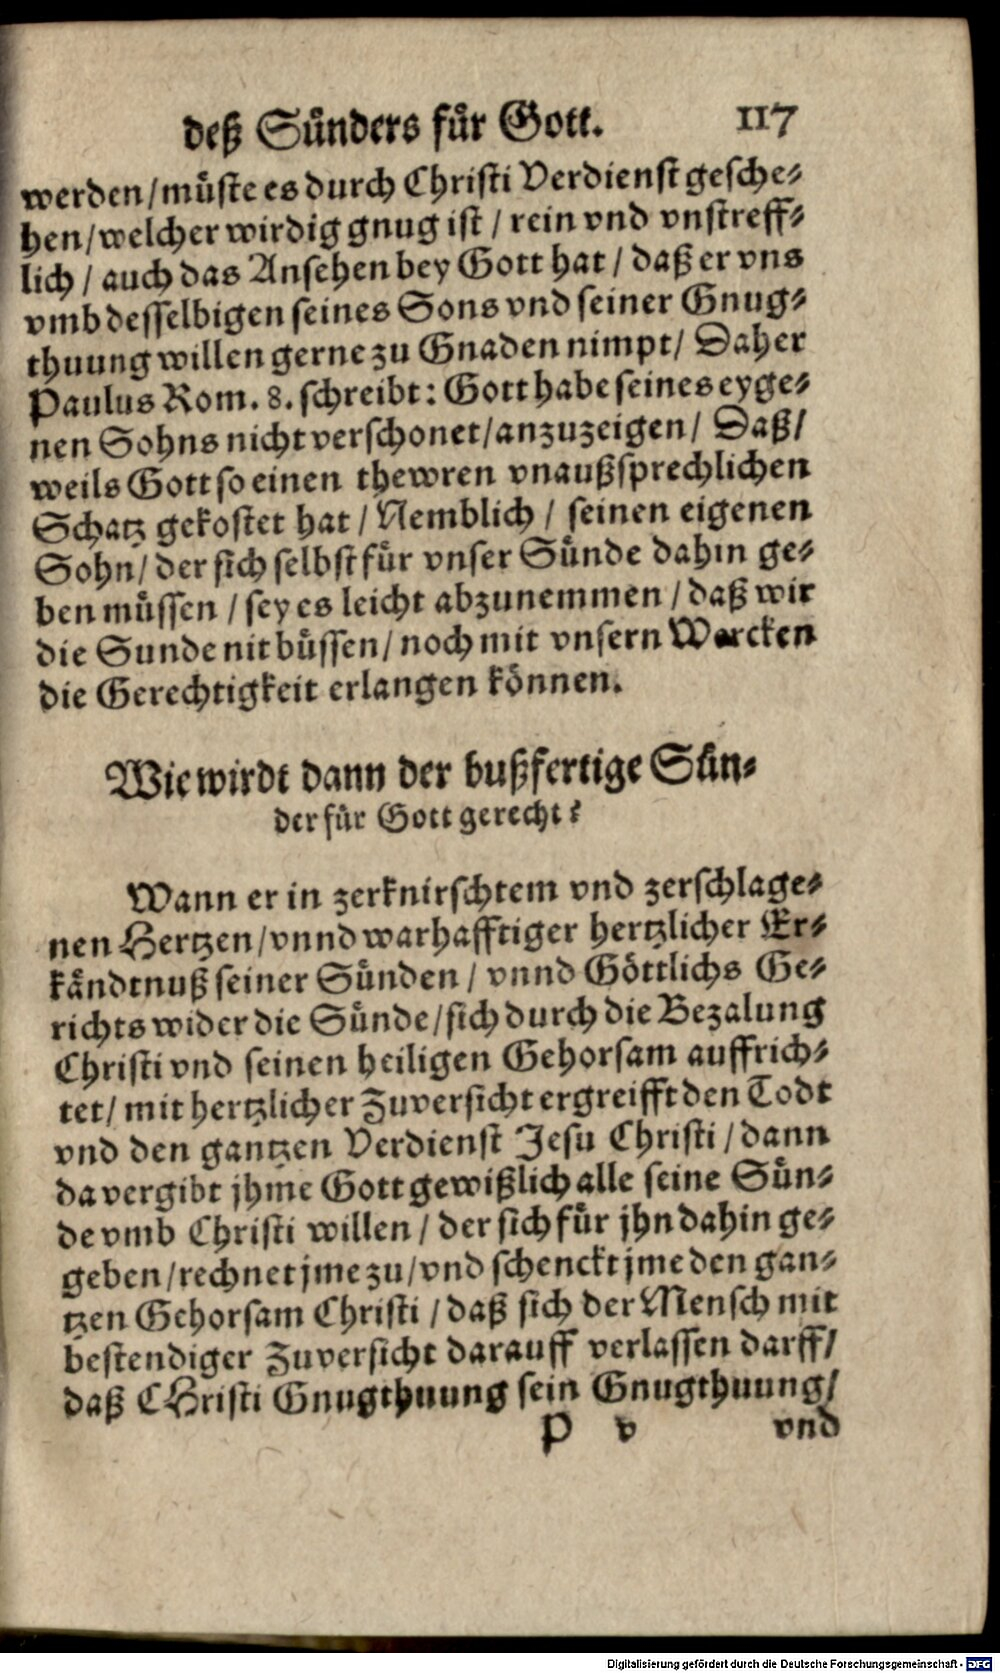 deß Sünders für Gott. 117
werden/müste es durch Christi Verdienst gesche-
hen/welcher wirdig gnug ist / rein vnd vnstreff-
lich / auch das Ansehen bey Gott hat / daß er vns
vmb desselbigen seines Sons vnd seiner Gnug-
thuung willen gerne zu Gnaden nimpt/ Daher
Paulus Rom. 8. schreibt: Gott habe seines eyge-
nen Sohns nicht verschonet/anzuzeigen/ Daß/
weils Gott so einen thewren vnaußsprechlichen
Schatz gekostet hat / Nemblich / seinen eigenen
Sohn/ der sich selbst für vnser Sünde dahin ge-
ben müssen / sey es leicht abzunemmen / daß wir
die Sunde nit büssen/ noch mit vnsern Wercken
die Gerechtigkeit erlangen können.
Wie wirdt dann der bußfertige Sün-
der für Gott gerecht?
Wann er in zerknirschtem vnd zerschlage-
nen Hertzen/vnnd warhafftiger hertzlicher Er-
kändtnuß seiner Sünden / vnnd Göttlichs Ge-
richts wider die Sünde/sich durch die Bezalung
Christi vnd seinen heiligen Gehorsam auffrich-
tet/ mit hertzlicher Zuversicht ergreifft den Todt
vnd den gantzen Verdienst Jesu Christi / dann
da vergibt jhme Gott gewißlich alle seine Sün-
de vmb Christi willen / der sich für jhn dahin ge-
geben/rechnet jme zu/vnd schenckt jme den gan-
tzen Gehorsam Christi / daß sich der Mensch mit
bestendiger Zuversicht darauff verlassen darff/
daß CHristi Gnugthuung sein Gnugthuung/
P v vnd
Digitalisierung gefördert durch die Deutsche Forschungsgemeinschaft - DFG